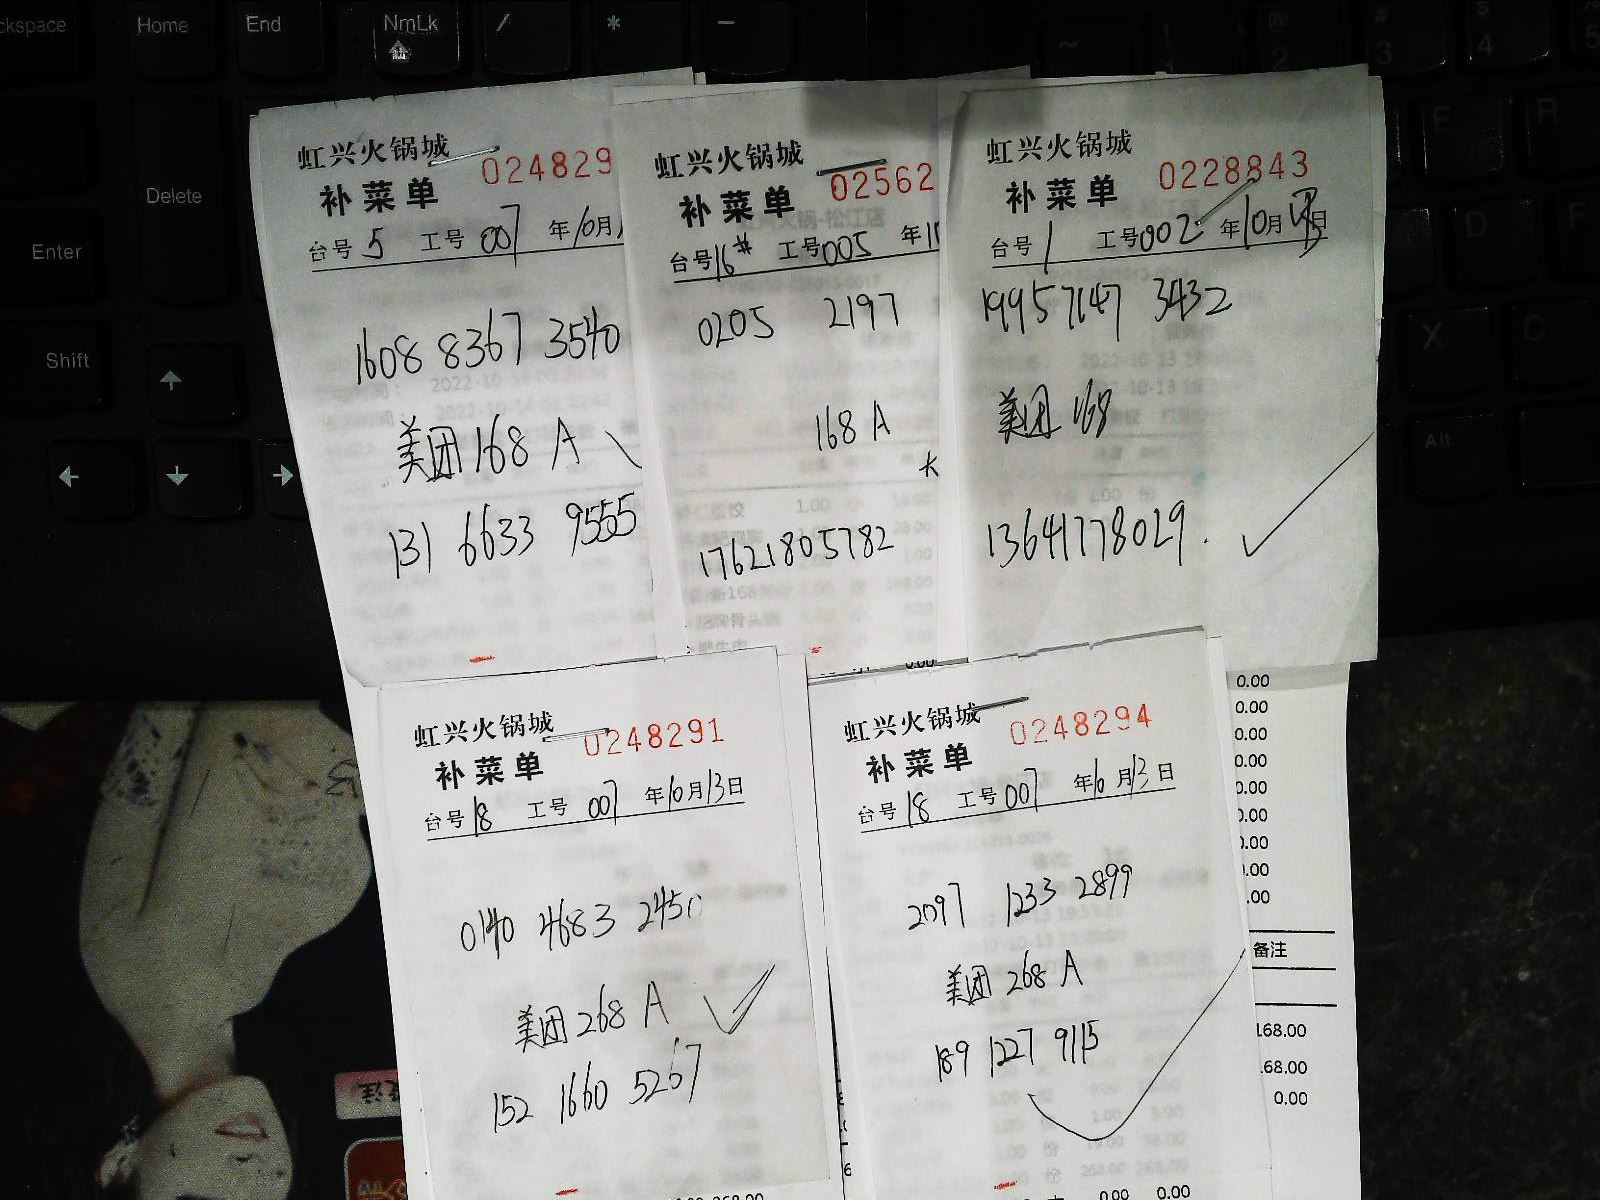 Home
End
NmLk
/
*
−
Delete
Enter
Shift
Alt
E
R
D
F
X
C
虹兴火锅城
024829
补菜单
台号5 工号007 年10月
1608 8367 3540
美团168 A
131 6633 9555
虹兴火锅城
02562
补菜单
台号16# 工号005 年1
0205 2197
168 A
17621805782
虹兴火锅城
0228843
补菜单
台号1 工号002 年10月13日
19957147 3432
美团168
13641778029.
虹兴火锅城
0248291
补菜单
台号18 工号007 年10月13日
0140 4683 2450
美团268 A
152 1660 5267
虹兴火锅城
0248294
补菜单
台号18 工号007 年10月13日
2097 1233 2899
美团268 A
189 1227 9115
0.00
0.00
0.00
0.00
0.00
0.00
0.00
0.00
.00
备注
168.00
68.00
0.00
0.00 0.00